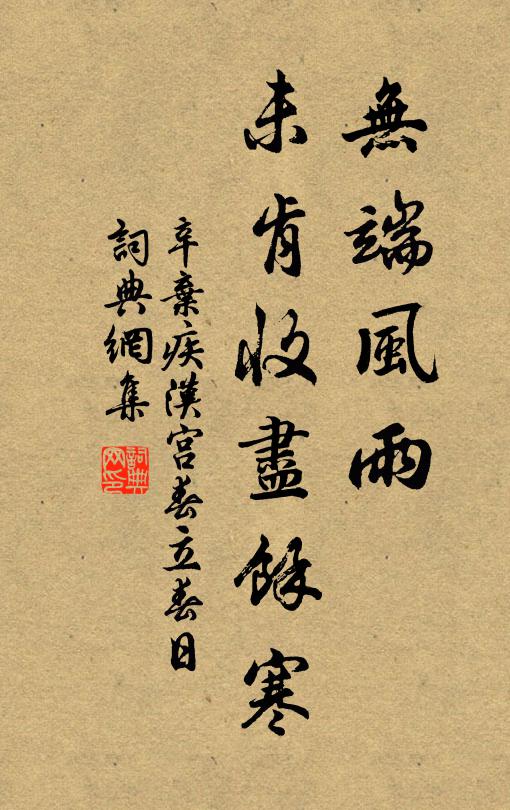 無端風雨
未肯收盡餘寒
辛棄疾漢宮春立春日
詞典網集
詞典网印